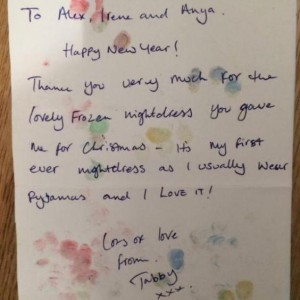 To Alex, Irene and Anya.
Happy New Year!
Thank you very much for the
lovely Frozen nightdress you gave
me for Christmas - its my first
ever nightdress as I usually wear
Pyjamas and I LOVE IT!
Lots of love
from
Tabby
xxx